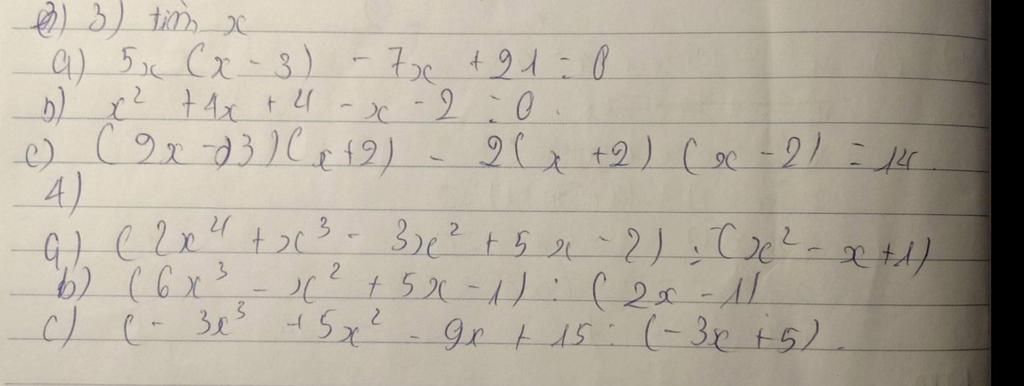 3) tìm x
a) 5x (x - 3) - 7x + 21 = 0
b) x² + 4x + 4 - x - 2 = 0.
c) (2x - 3)(x + 2) - 2(x + 2) (x - 2) = 14.
4)
a) (2x⁴ + x³ - 3x² + 5x - 2) : (x² - x + 1)
b) (6x³ - x² + 5x - 1) : (2x - 1)
c) (- 3x³ + 5x² - 9x + 15 : (-3x + 5).